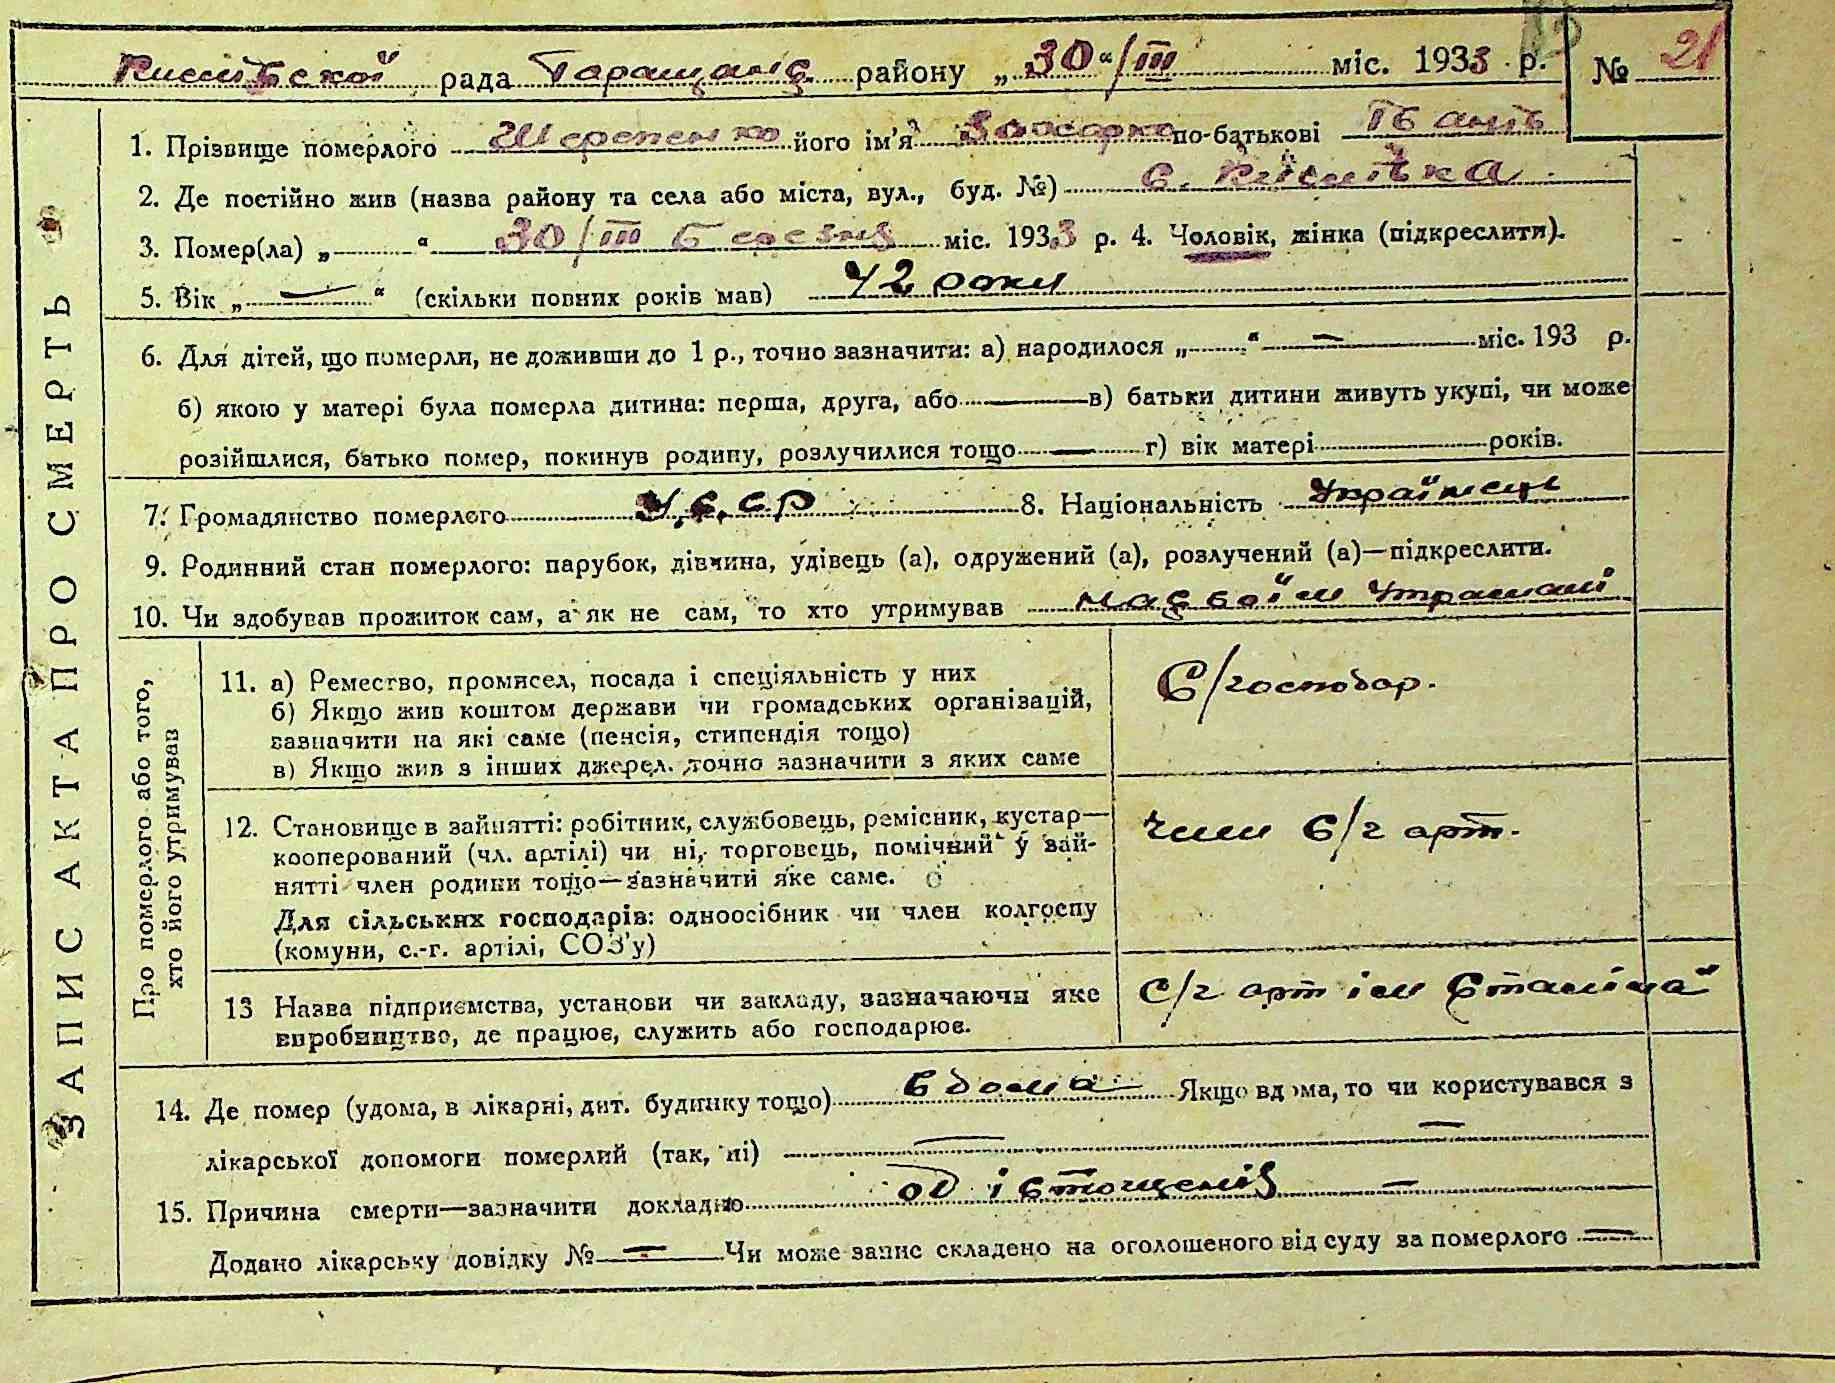 рада Таращанс. району „30“/III міс. 1933 р. № 21
ЗАПИС АКТА ПРО СМЕРТЬ
1. Прізвище померлого його ім’я по-батькові
2. Де постійно жив (назва району та села або міста, вул., буд. №) с. Кислівка
3. Помер(ла) „ “ 30/III Березня міс. 1933 р. 4. Чоловік, жінка (підкреслити).
5. Вік „—“ (скільки повних років мав) 42 роки
6. Для дітей, що померли, не доживши до 1 р., точно зазначити: а) народилося „ “ — міс. 193 р.
б) якою у матері була померла дитина: перша, друга, або — в) батьки дитини живуть укупі, чи може
розійшлися, батько помер, покинув родину, розлучилися тощо — г) вік матері років.
7. Громадянство померлого У.С.С.Р 8. Національність Українець
9. Родинний стан померлого: парубок, дівчина, удівець (а), одружений (а), розлучений (а)—підкреслити.
10. Чи здобував прожиток сам, а як не сам, то хто утримував
Про померлого або того,
хто його утримував
11. а) Ремество, промисел, посада і спеціяльність у них С/господар.
б) Якщо жив коштом держави чи громадських організацій,
зазначити на які саме (пенсія, стипендія тощо)
в) Якщо жив з інших джерел. точно зазначити з яких саме
12. Становище в зайнятті: робітник, службовець, ремісник, кустар— член С/г арт.
кооперований (чл. артілі) чи ні, торговець, помічний у зай-
нятті член родини тощо—зазначити яке саме.
Для сільських господарів: одноосібник чи член колгоспу
(комуни, с.-г. артілі, СОЗ’у)
13 Назва підприємства, установи чи закладу, зазначаючи яке С/г арт ім Сталіна
виробництво, де працює, служить або господарює.
14. Де помер (удома, в лікарні, дит. будинку тощо) вдома Якщо вдома, то чи користувався з
лікарської допомоги померлий (так, ні) — —
15. Причина смерти—зазначити докладно од істощенія —
Додано лікарську довідку № — Чи може запис складено на оголошеного від суду за померлого —